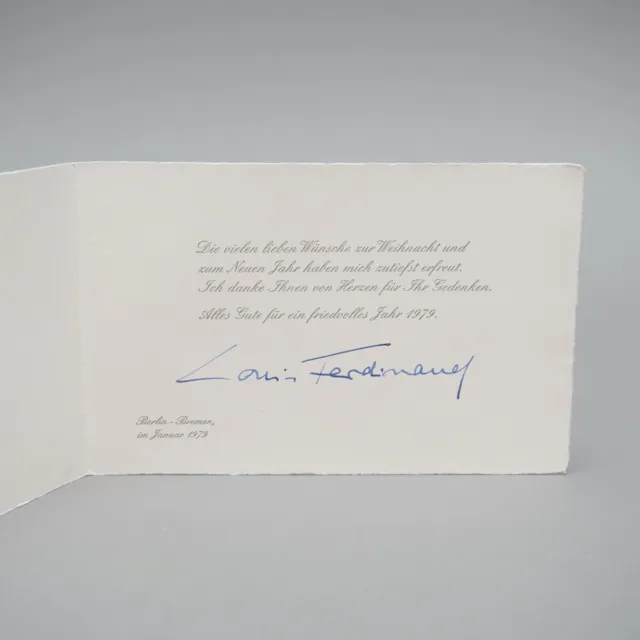 Die vielen lieben Wünsche zur Weihnacht und
zum Neuen Jahr haben mich zutießt erfreut.
Ich danke Ihnen von Herzen für Ihr Gedenken.
Alles Gute für ein friedvolles Jahr 1979.
Louis Ferdinand
Berlin - Bremen,
im Januar 1979